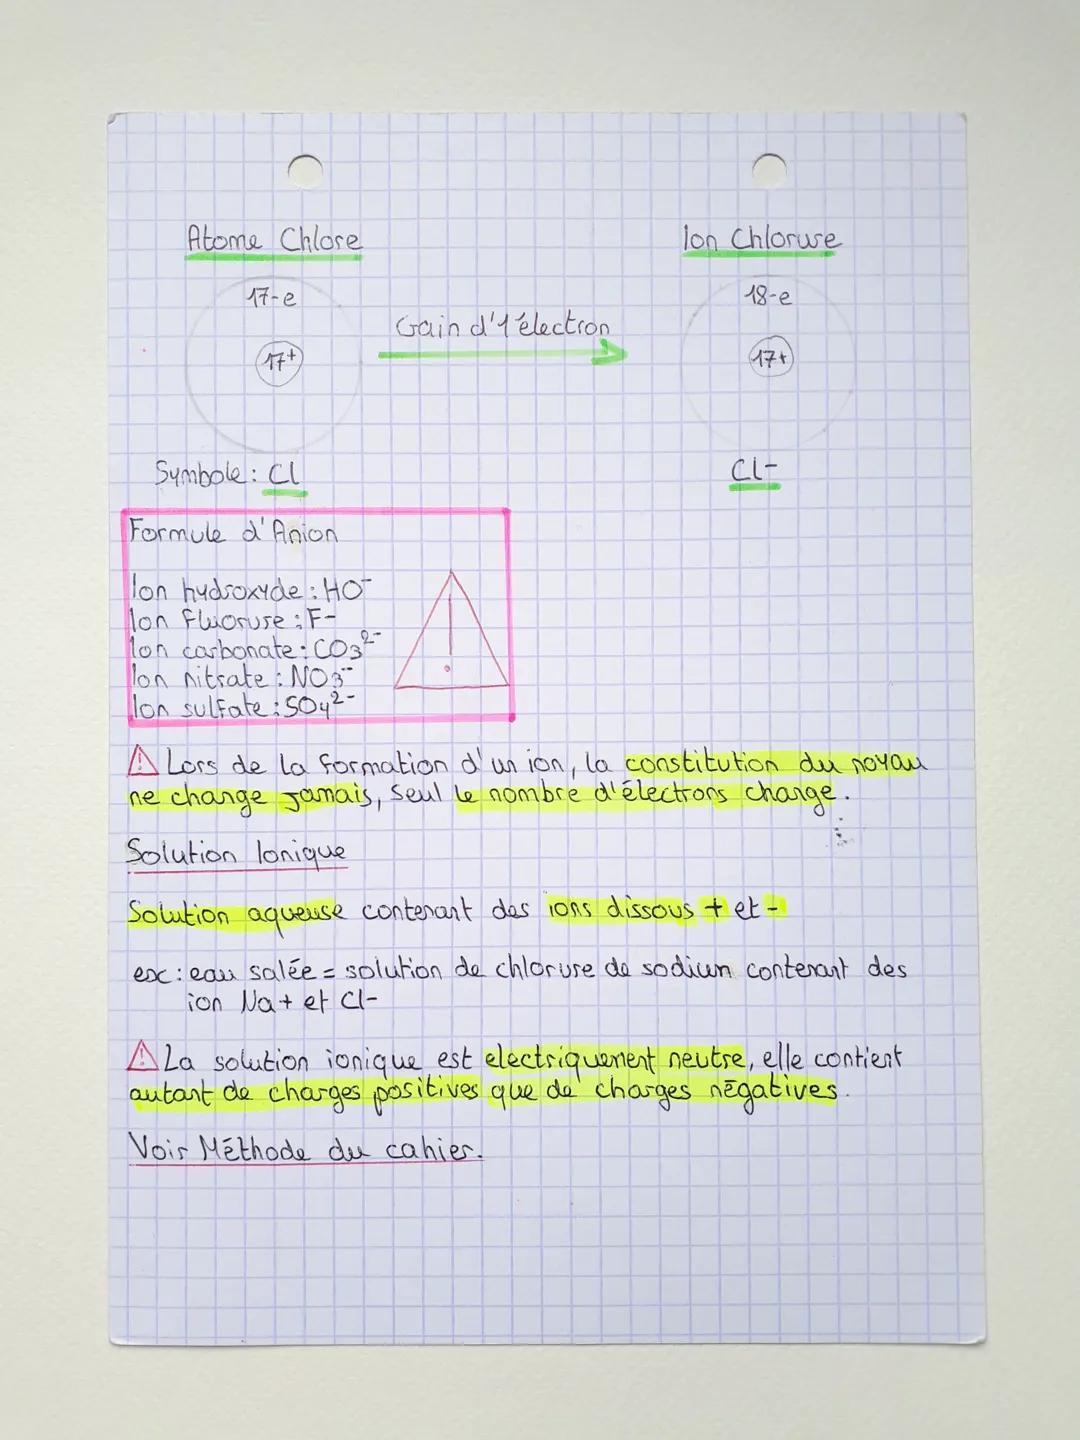 Atome Chlore
Ion Chlorure
17-e
18-e
Gain d'1 électron
17+
17+
Symbole : Cl
Cl-
Formule d'Anion
Ion hydroxyde : HO⁻
Ion Fluorure : F-
Ion carbonate : CO₃²⁻
Ion nitrate : NO₃⁻
Ion sulfate : SO₄²⁻
!
⚠ Lors de la formation d'un ion, la constitution du noyau
ne change jamais, seul le nombre d'électrons change.
Solution Ionique
Solution aqueuse contenant des ions dissous + et -
ex : eau salée = solution de chlorure de sodium contenant des
ion Na+ et Cl-
⚠ La solution ionique est electriquement neutre, elle contient
autant de charges positives que de charges négatives.
Voir Méthode du cahier.